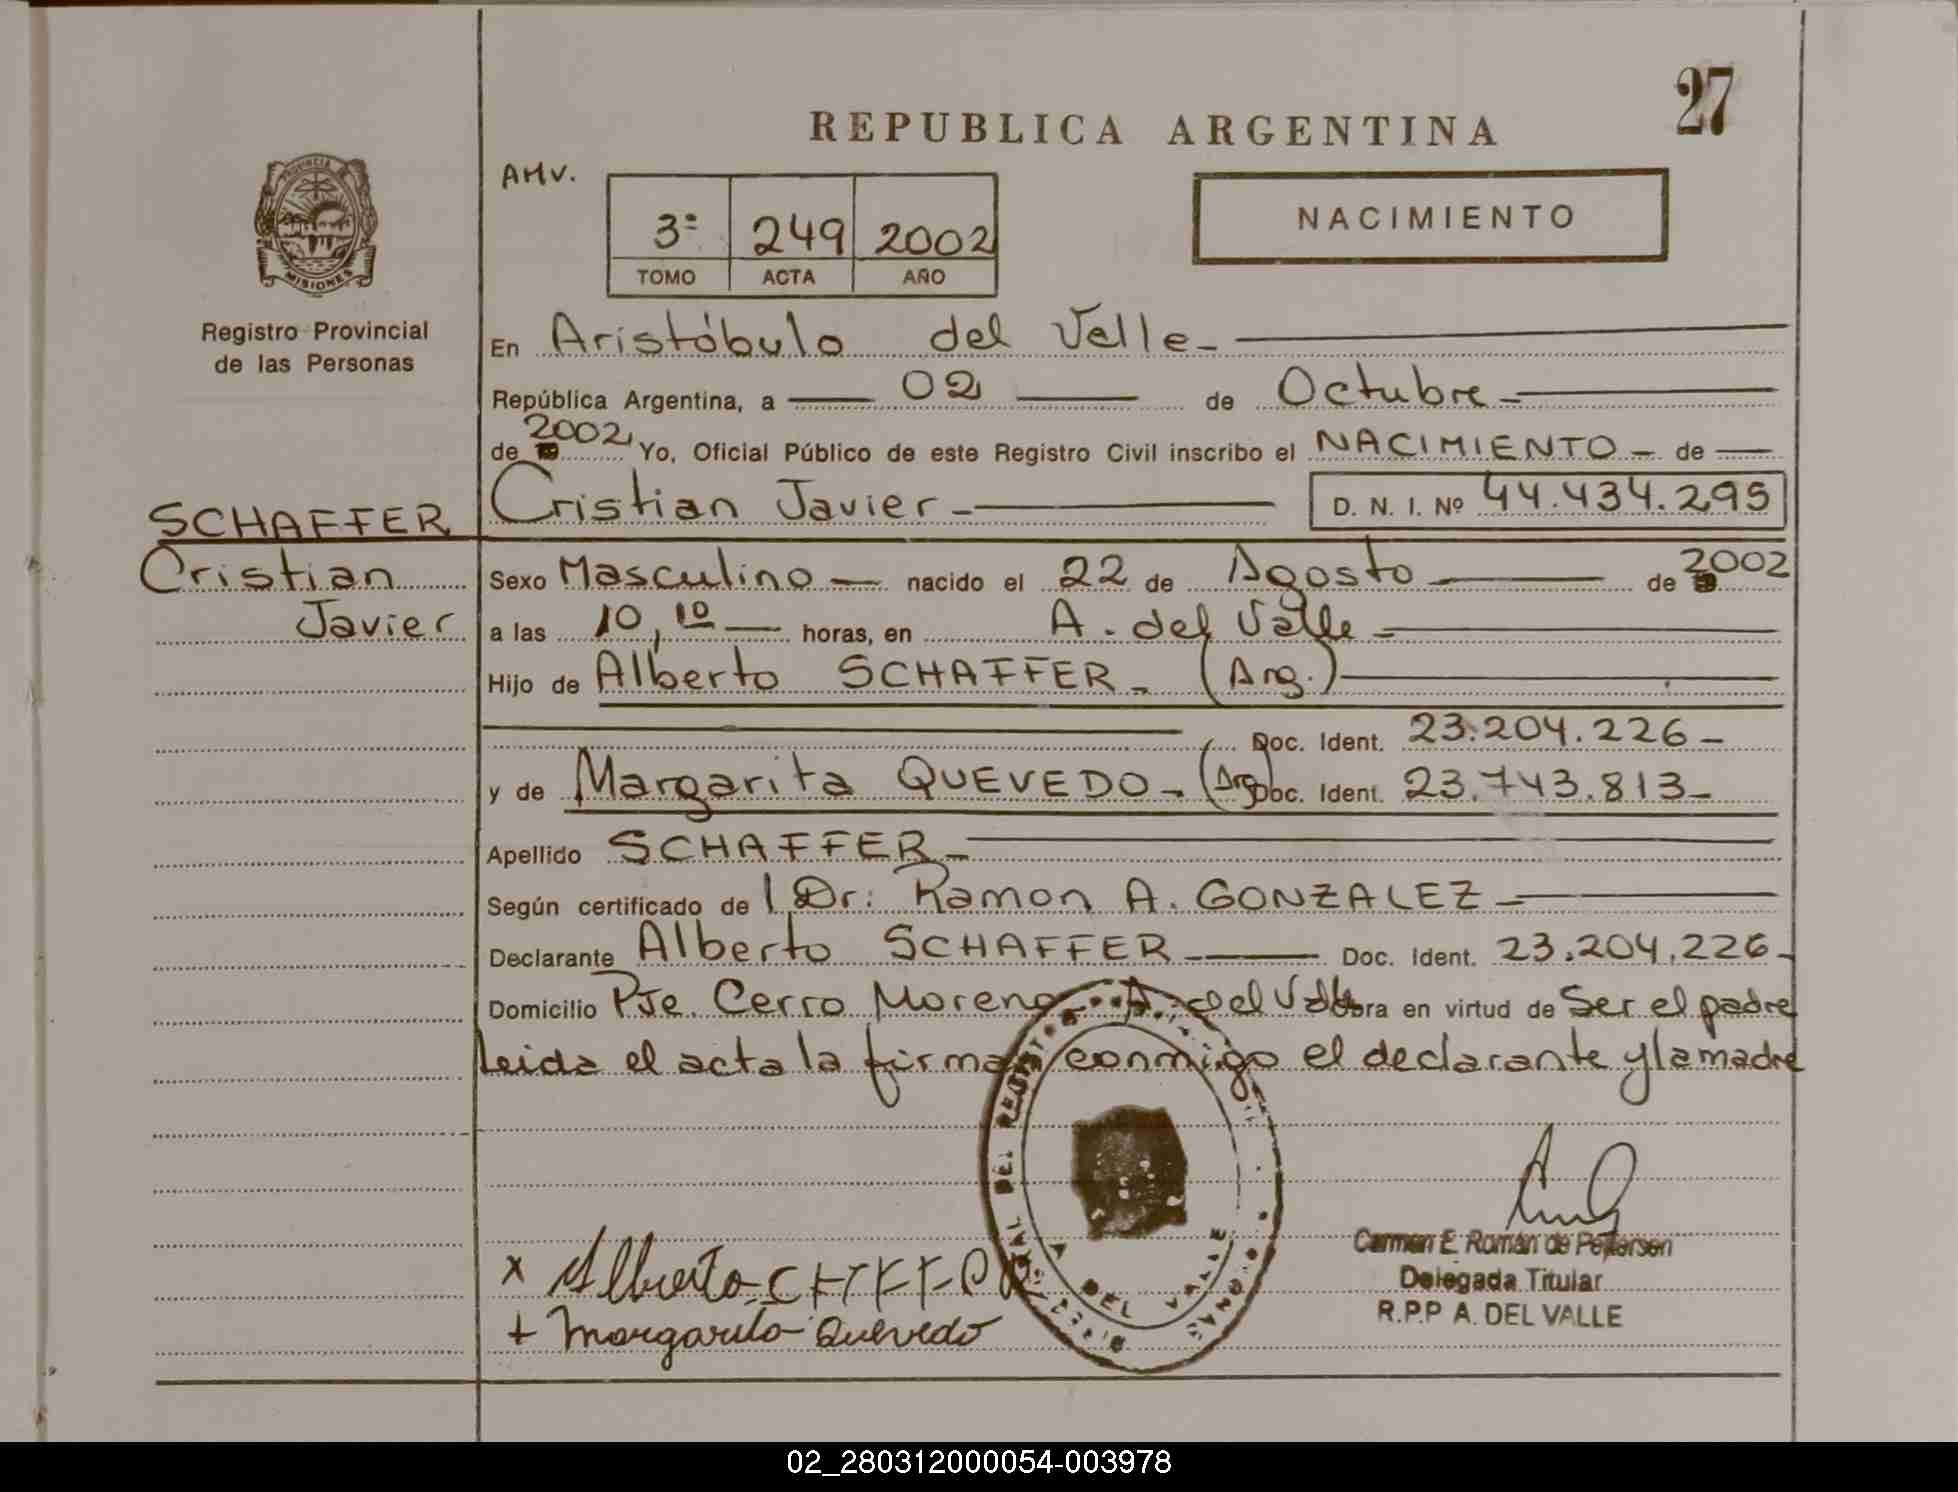 27
REPUBLICA ARGENTINA
AMV.
3º 249 2002
TOMO ACTA AÑO
NACIMIENTO
PROVINCIA
MISIONES
Registro Provincial
de las Personas
En Aristóbulo del Valle
República Argentina, a 02 de Octubre
de 2002 Yo, Oficial Público de este Registro Civil inscribo el NACIMIENTO de
Cristian Javier D. N. I. Nº 44.434.295
SCHAFFER
Cristian
Javier
Sexo Masculino nacido el 22 de Agosto de 2002
a las 10,10 horas, en A. del Valle
Hijo de Alberto SCHAFFER (Arg.)
Doc. Ident. 23.204.226
y de Margarita QUEVEDO (Arg) Doc. Ident. 23.743.813
Apellido SCHAFFER
Según certificado de l Dr: Ramon A. GONZALEZ
Declarante Alberto SCHAFFER Doc. Ident. 23.204.226
Domicilio Pje. Cerro Moreno A. del Valle obra en virtud de Ser el padre
Leida el acta la firman conmigo el declarante y la madre
x Alberto
+ Margarita Quevedo
A DEL VALLE
Carmen E. Román de Petterson
Delegada Titular
R.P.P A. DEL VALLE
02_280312000054-003978